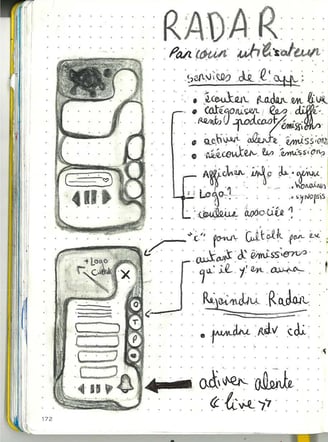 RADAR
Parcours utilisateur
services de l'app :
• écouter Radar en live
• catégoriser les diffé-
rents podcast/émissions
• activer alerte émissions
• réécouter les émissions
Afficher info de • genre
• horaires
• synopsis
Logo ?
couleur associée ?
+ Logo
Cultalk
X
"c" pour Cultalk par ex
autant d'émissions
qu'il y'en aura
C
T
P
Rejoindre Radar
• prendre rdv cdi
activer alerte
« live »
172